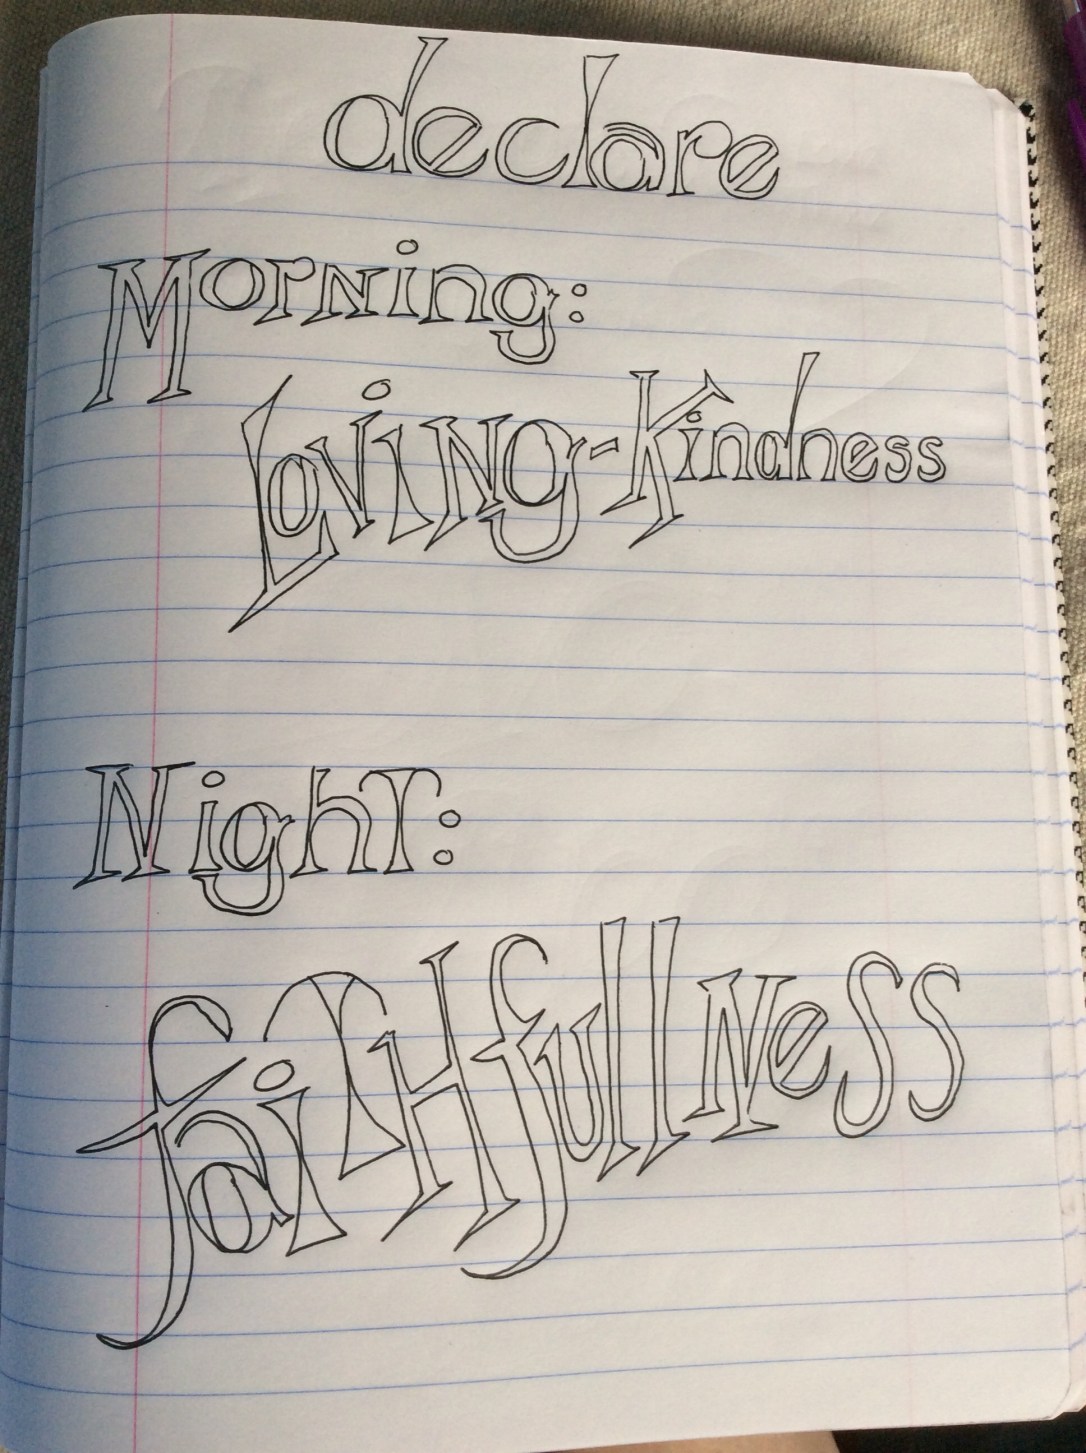 declare
Morning:
Loving-Kindness
Night:
faithfullness